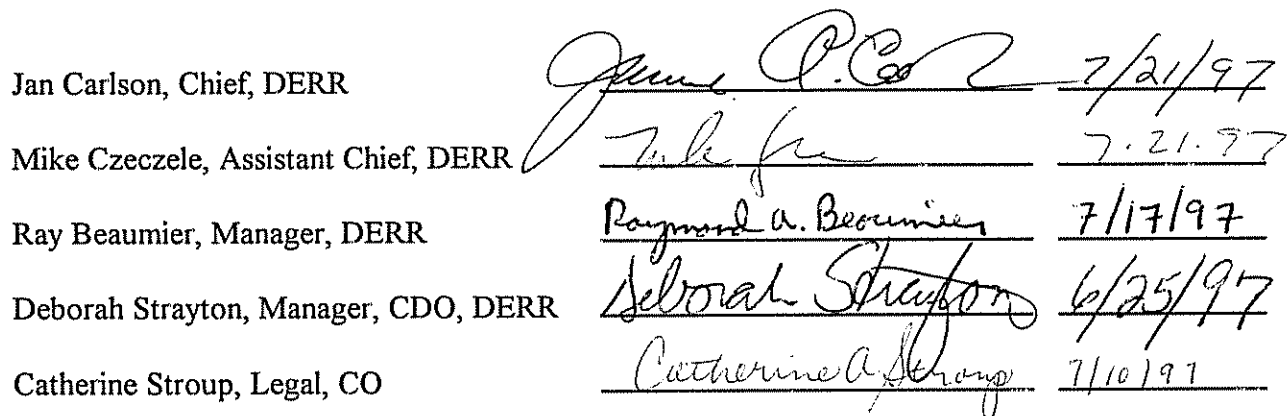 Jan Carlson, Chief, DERR 7/21/97
Mike Czeczele, Assistant Chief, DERR 7.21.97
Ray Beaumier, Manager, DERR Raymond A. Beaumier 7/17/97
Deborah Strayton, Manager, CDO, DERR Deborah Strayton 6/25/97
Catherine Stroup, Legal, CO Catherine A. Stroup 7/10/97